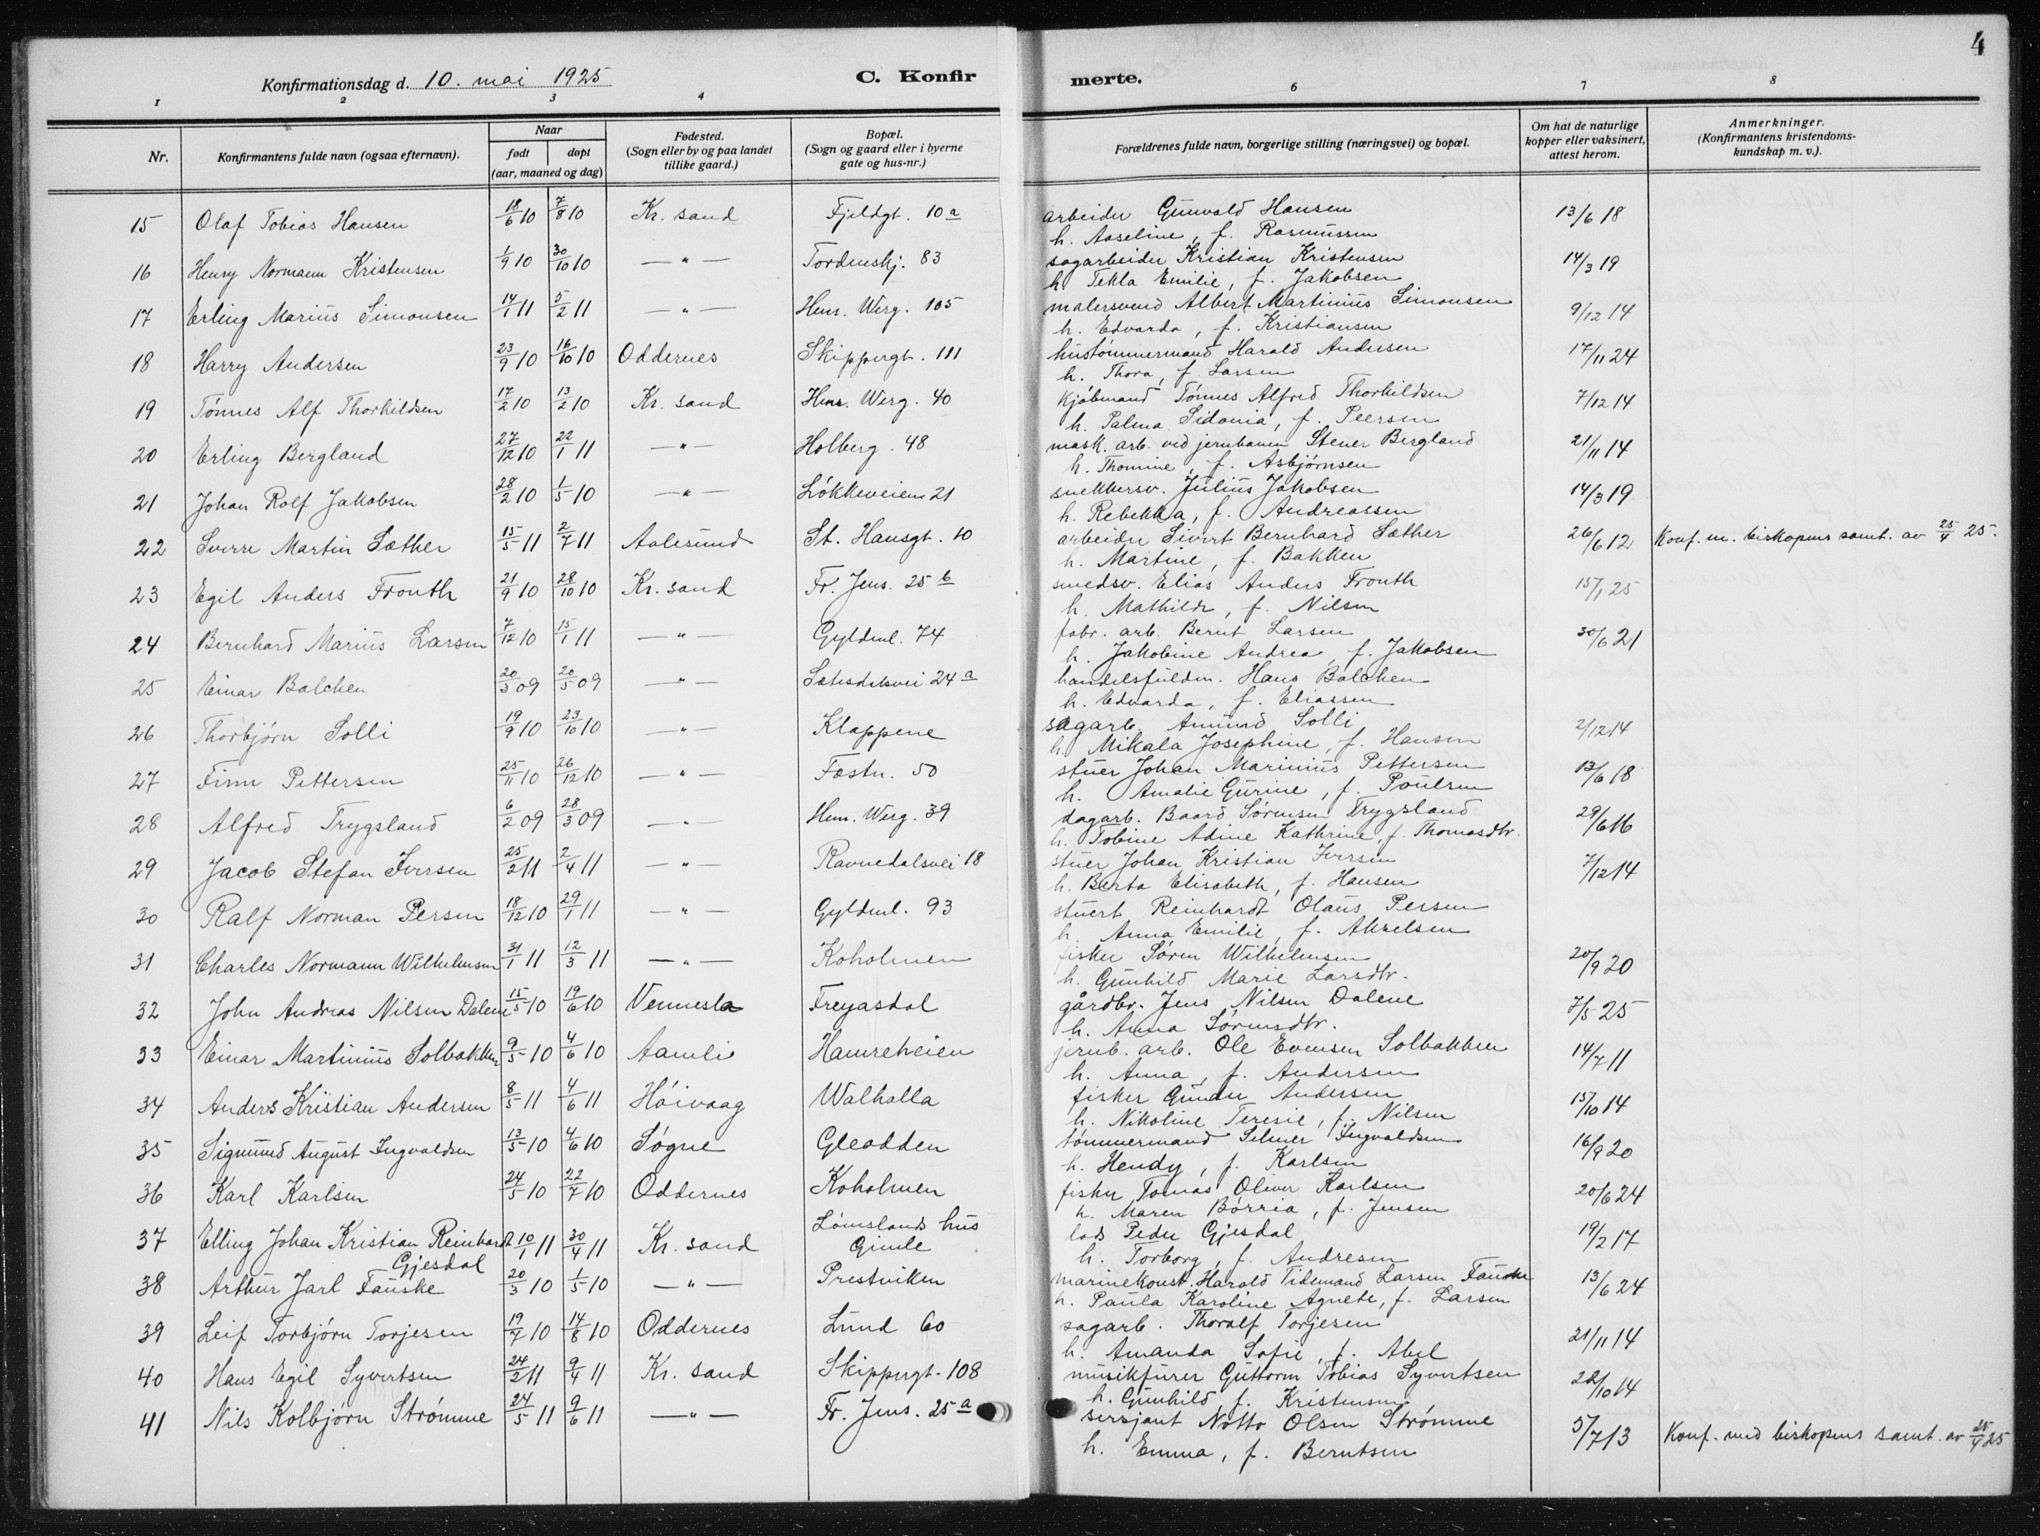 4
Konfirmationsdag d. 10. mai 1925
C. Konfirmerte.
1 2 3 4 6 7 8
Nr.
Konfirmantens fulde navn (ogsaa efternavn).
Naar
født døpt
(aar, maaned og dag)
Fødested.
(Sogn eller by og paa landet
tillike gaard.)
Bopæl.
(Sogn og gaard eller i byerne
gate og hus-nr.)
Forældrenes fulde navn, borgerlige stilling (næringsvei) og bopæl.
Om hat de naturlige
kopper eller vaksinert,
attest herom.
Anmerkninger.
(Konfirmantens kristendoms-
kundskap m. v.).
15 Olaf Tobias Hansen 18/6 10 7/8 10 Kr. sand Fjeldgt. 10 a arbeider Gunvald Hansen 13/6 18
h. Aaseline, f. Rasmussen
16 Henry Normann Kristensen 1/9 10 30/10 10 —"— Tordenskj. 83 sagarbeider Kristian Kristensen 14/3 19
h. Tekla Emilie, f. Jakobsen
17 Erling Marius Simonsen 14/1 11 5/2 11 —"— Hen. Werg. 105 malersvend Albert Martinius Simonsen 9/12 14
h. Edvarda, f. Kristiansen
18 Harry Andersen 23/9 10 16/10 10 Oddernes Skippergt. 111 hustømmermand Harald Andersen 17/11 24
h. Thora, f. Larsen
19 Tønnes Alf Thorkildsen 17/2 10 13/2 10 Kr. sand Hen. Werg. 40 kjøbmand Tønnes Alfred Thorkildsen 7/12 14
h. Palma Sidonia, f. Peersen
20 Erling Bergland 27/12 10 22/1 11 —"— Holberg. 48 mask. arb. ved jernbanen Stener Bergland 21/11 14
h. Thomine, f. Asbjørnsen
21 Johan Rolf Jakobsen 28/2 10 1/5 10 —"— Løkkeveien 21 snekkersv. Julius Jakobsen 14/3 19
h. Rebekka, f. Andreassen
22 Sverre Martin Sæther 15/5 11 2/7 11 Aalesund St. Hansgt. 10 arbeider Sivert Bernhard Sæther 26/6 12 Konf. m. biskopens samt. av 25/4 25.
h. Martine, f. Bakken
23 Egil Anders Fronth 21/9 10 28/10 10 Kr. sand Fr. Jens. 25 b smedsv. Elias Anders Fronth 15/1 25
h. Mathilde, f. Nilsen
24 Bernhard Marius Larsen 7/12 10 15/1 11 —"— Gyldenl. 74 fabr. arb. Bernt Larsen 30/6 21
h. Jakobine Andrea, f. Jakobsen
25 Einar Balchen 20/3 09 20/5 09 —"— Sætesdalsvei 24 a handelsfuldm. Hans Balchen
h. Edvarda, f. Eliassen
26 Thorbjørn Solli 19/9 10 23/10 10 —"— Klappene sagarb. Amund Solli 2/12 14
h. Mikala Josephine, f. Hansen
27 Finn Pettersen 25/11 10 26/12 10 —"— Fæstn. 50 stuer Johan Marinius Pettersen 13/6 18
h. Amalie Gurine, f. Poulsen
28 Alfred Trygsland 6/2 09 28/3 09 —"— Hen. Werg. 39 dagarb. Baard Sørensen Trygsland 29/6 16
h. Tobine Adine Kathrine, f. Thomasdtr.
29 Jacob Stefan Iversen 25/2 11 2/4 11 —"— Ravnedalsvei 18 stuer Johan Kristian Iversen 7/12 14
h. Berta Elisabeth, f. Hansen
30 Ralf Norman Persen 18/12 10 29/1 11 —"— Gyldenl. 93 stuert Reinhardt Olaus Persen
h. Anna Emilie, f. Akselsen
31 Charles Normann Wilhelmsen 31/1 11 12/3 11 —"— Koholmen fisker Søren Wilhelmsen 20/9 20
h. Gunhild Marie Larsdtr.
32 John Andreas Nilsen Dalene 15/5 10 19/6 10 Vennesla Freyasdal gårdbr. Jens Nilsen Dalene 7/5 25
h. Anna Sørensdtr.
33 Einar Martinius Solbakken 9/5 10 4/6 10 Aamli Hamreheien jernb. arb. Ole Evensen Solbakken 14/7 11
h. Anna, f. Andersen
34 Anders Kristian Andersen 8/5 11 4/6 11 Høivaag Walhalla fisker Gunder Andersen 15/10 14
h. Nikoline Teresie, f. Nilsen
35 Sigmund August Ingvaldsen 13/5 10 4/6 10 Søgne Gleodden tømmermand Selmer Ingvaldsen 16/9 20
h. Hendy, f. Karlsen
36 Karl Karlsen 24/5 10 22/7 10 Oddernes Koholmen fisker Tomas Oliver Karlsen 20/6 24
h. Maren Børria, f. Jensen
37 Elling Johan Kristian Reinhardt 10/1 11 30/4 11 Kr. sand Lømslands hus lods Peder Gjesdal 19/2 17
Gjesdal Gimle h. Torborg, f. Andresen
38 Arthur Jarl Fauske 20/3 10 1/5 10 —"— Prestviken marinekonst. Harald Tidemand Larsen Fauske 13/6 24
h. Paula Karoline Agnete, f. Larsen
39 Leif Torbjørn Torjesen 19/7 10 14/8 10 Oddernes Lund 60 sagarb. Thoralf Torjesen 21/11 14
h. Amanda Sofie, f. Abel
40 Hans Egil Syvertsen 24/2 11 9/4 11 Kr. sand Skippergt. 108 musikfurer Guttorm Tobias Syvertsen 22/10 14
h. Gunhild f. Kristensen
41 Nils Kolbjørn Strømme 24/5 11 9/6 11 —"— Fr. Jens. 25 a sersjant Notto Olsen Strømme 5/7 13 Konf. med biskopens samt. av 25/4 25
h. Emma, f. Berntsen